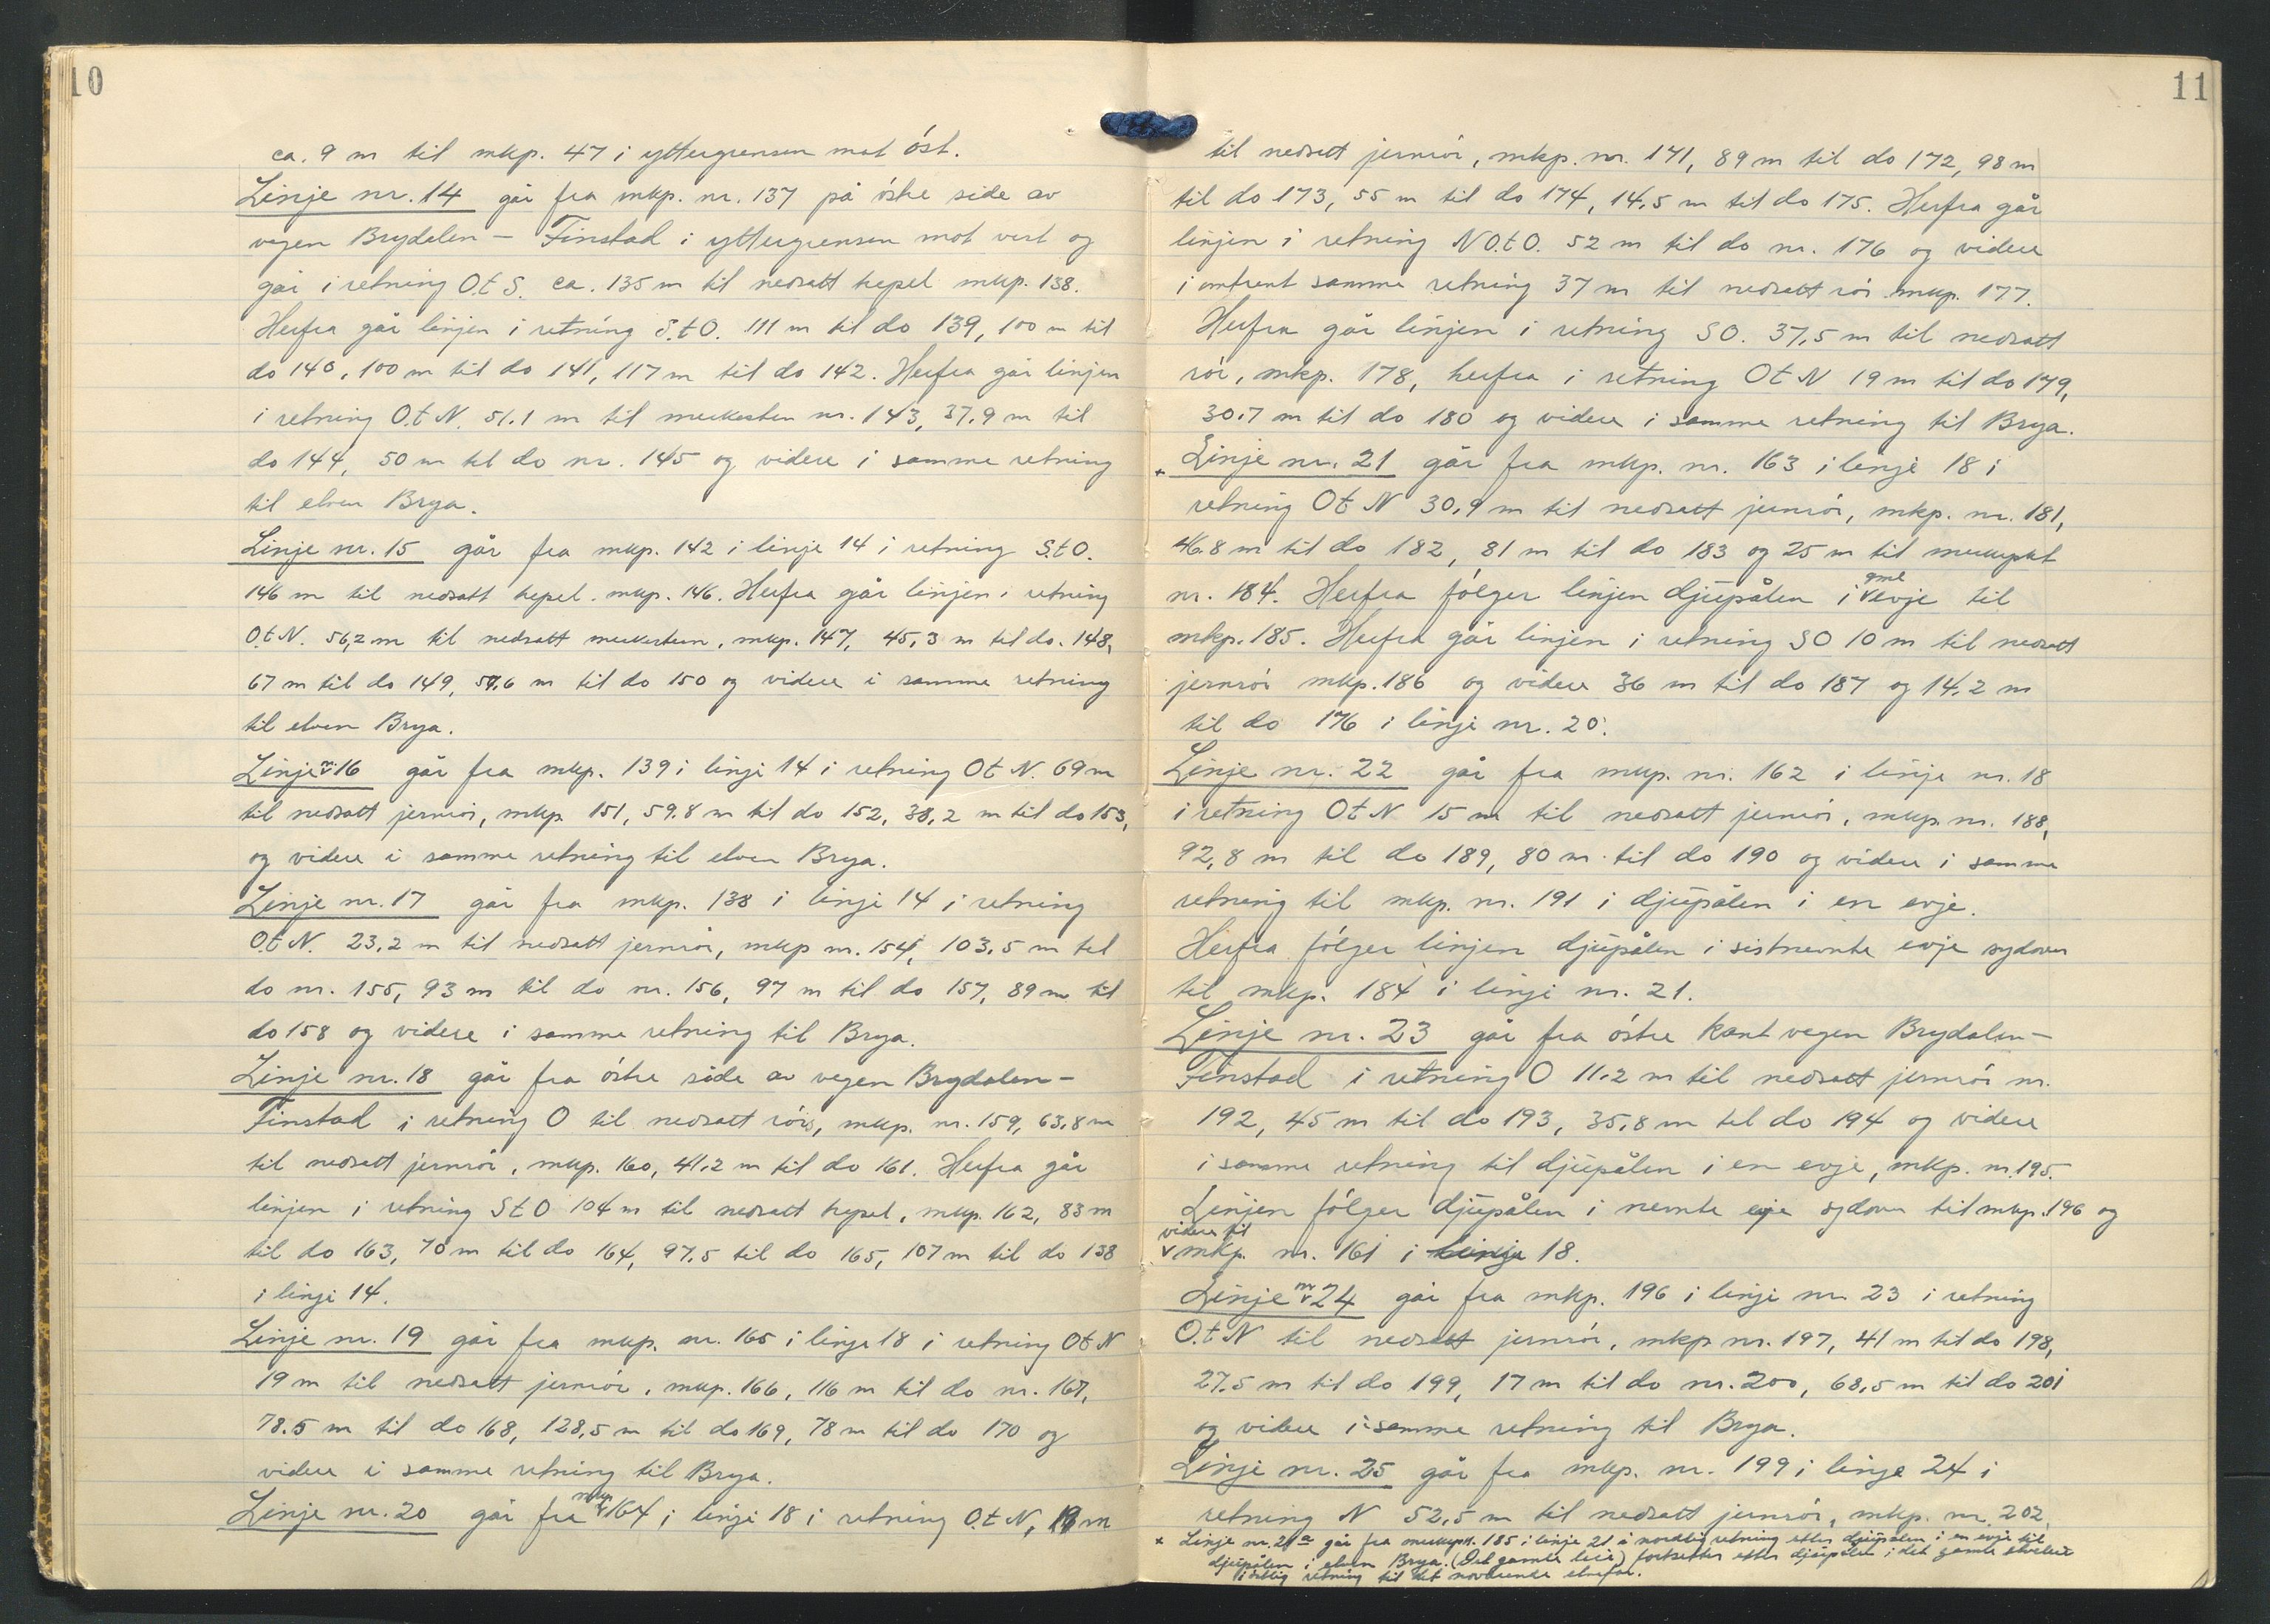 10
ca. 9 m til mkp. 47 i yttergrensen mot óst.
Linje nr. 14 går fra mkp. nr. 137 på óstre side av
vegen Brydalen – Finstad i yttergrensen mot vest og
går i retning O.t S. ca. 135 m til nedsatt hepel mkp. 138.
Herfra går linjen i retning S.t O. 111 m til do 139, 100 m til
do 140, 100 m til do 141, 117 m til do 142. Herfra går linjen
i retning O.t N. 51.1 m til merkesten nr. 143, 37.9 m til
do 144, 50 m til do nr. 145 og videre i samme retning
til elven Brya.
Linje nr. 15 går fra mkp. 142 i linje 14 i retning S.t O.
146 m til nedsatt hepel. mkp. 146. Herfra går linjen i retning
O.t N. 56,2 m til nedsatt merkesten, mkp. 147, 45,3 m til do. 148,
67 m til do 149, 57,6 m til do 150 og videre i samme retning
til elven Brya.
Linje nr. 16 går fra mkp. 139 i linje 14 i retning O t N. 69 m
til nedsatt jernrór, mkp. 151, 59.8 m til do 152, 38,2 m til do 153,
og videre i samme retning til elven Brya.
Linje nr. 17 går fra mkp. 138 i linje 14 i retning
O.t N. 23,2 m til nedsatt jernrór, mkp nr. 154, 103,5 m til
do nr. 155, 93 m til do nr. 156, 97 m til do 157, 89 m til
do 158 og videre i samme retning til Brya.
Linje nr. 18 går fra óstre side av vegen Brydalen –
Finstad i retning O til nedsatt rór, mkp. nr. 159, 63,8 m
til nedsatt jernrór, mkp. 160, 41,2 m til do 161. Herfra går
linjen i retning S t O 104 m til nedsatt hepel, mkp. 162, 83 m
til do 163, 70 m til do 164, 97,5 til do 165, 107 m til do 138
i linje 14.
Linje nr. 19 går fra mkp. nr. 165 i linje 18 i retning O t N
19 m til nedsatt jernrór, mkp. 166, 116 m til do nr. 167,
78.5 m til do 168, 128,5 m til do 169, 78 m til do 170 og
videre i samme retning til Brya.
Linje nr. 20 går fra mkp 164 i linje 18 i retning O.t N, 19 m
11
til nedsatt jernrór, mkp. nr. 171, 89 m til do 172, 98 m
til do 173, 55 m til do 174, 14,5 m til do 175. Herfra går
linjen i retning N O.t O. 52 m til do nr. 176 og videre
i omtrent samme retning 37 m til nedsatt rór mkp. 177.
Herfra går linjen i retning S O. 37,5 m til nedsatt
rór, mkp. 178, herfra i retning O t N 19 m til do 179,
30.7 m til do 180 og videre i samme retning til Brya.
x Linje nr. 21 går fra mkp. nr. 163 i linje 18 i
retning O t N 30,9 m til nedsatt jernrór, mkp. nr. 181,
46.8 m til do 182, 81 m til do 183 og 25 m til merkepkt
nr. 184. Herfra fólger linjen djupålen i gml evje til
mkp. 185. Herfra går linjen i retning S O 10 m til nedsatt
jernrór mkp. 186 og videre 36 m til do 187 og 14,2 m
til do 176 i linje nr. 20.
Linje nr. 22 går fra mkp. nr. 162 i linje nr. 18
i retning O t N 15 m til nedsatt jernrór, mkp. nr. 188,
92,8 m til do 189, 80 m til do 190 og videre i samme
retning til mkp. nr. 191 i djupålen i en evje.
Herfra fólger linjen djupålen i sistnevnte evje sydover
til mkp. 184 i linje nr. 21.
Linje nr. 23 går fra óstre kant vegen Brydalen –
Finstad i retning O 11.2 m til nedsatt jernrór nr.
192, 45 m til do 193, 35,8 m til do 194 og videre
i samme retning til djupålen i en evje, mkp. nr. 195.
Linjen fólger djupålen i nevnte evje sydover til mkp. 196 og
videre til mkp. nr. 161 i linje 18.
Linje nr 24 går fra mkp. 196 i linje nr. 23 i retning
O.t N til nedsatt jernrór, mkp nr. 197, 41 m til do 198,
27.5 m til do 199, 17 m til do nr. 200, 68,5 m til do 201
og videre i samme retning til Brya.
Linje nr. 25 går fra mkp. nr. 199 i linje 24 i
retning N 52,5 m til nedsatt jernrór, mkp. nr. 202.
x Linje nr. 21 a går fra merkepkt. 185 i linje 21 i nordlig retning etter djupålen i en evje til
djupålen i elven Brya. (Det gamle leie) fortsetter etter djupålen i det gamle elveleie
i óstlig retning til det nóværende elvefar.